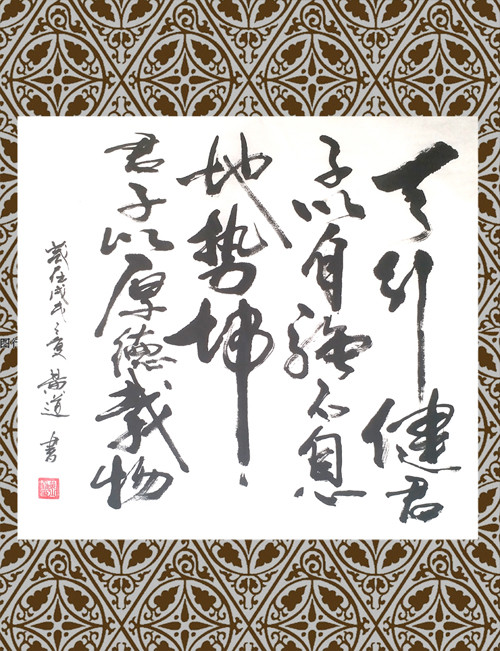 天行健君
子以自强不息
地势坤
君子以厚德载物
岁在戊戌之夏 道 书